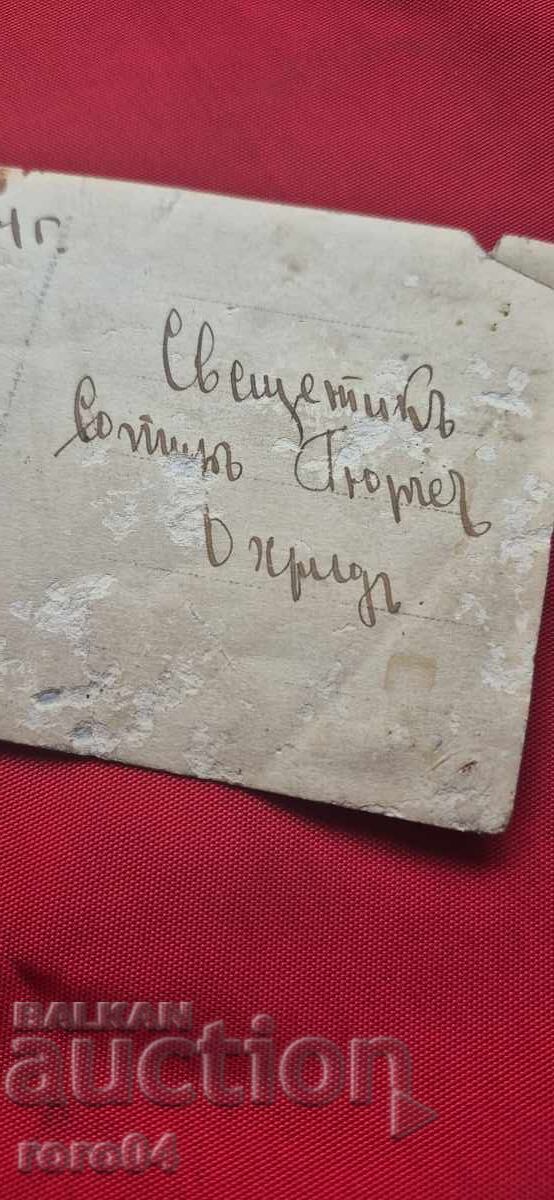 г.
Свещетикъ
Сотиръ Гюрчев
Охридъ.
BALKAN
auction
roro04